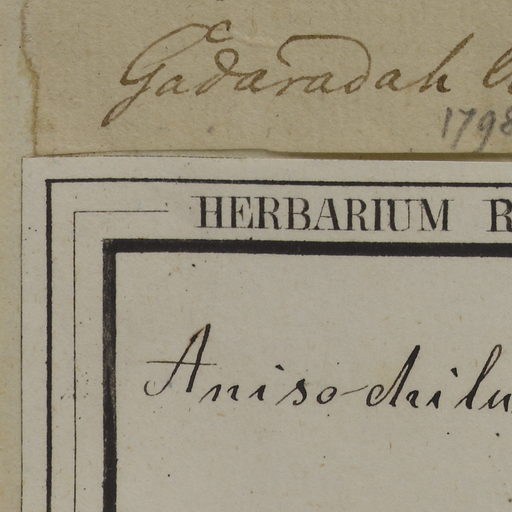 Gadaradah
1798
HERBARIUM R
Anisochilu